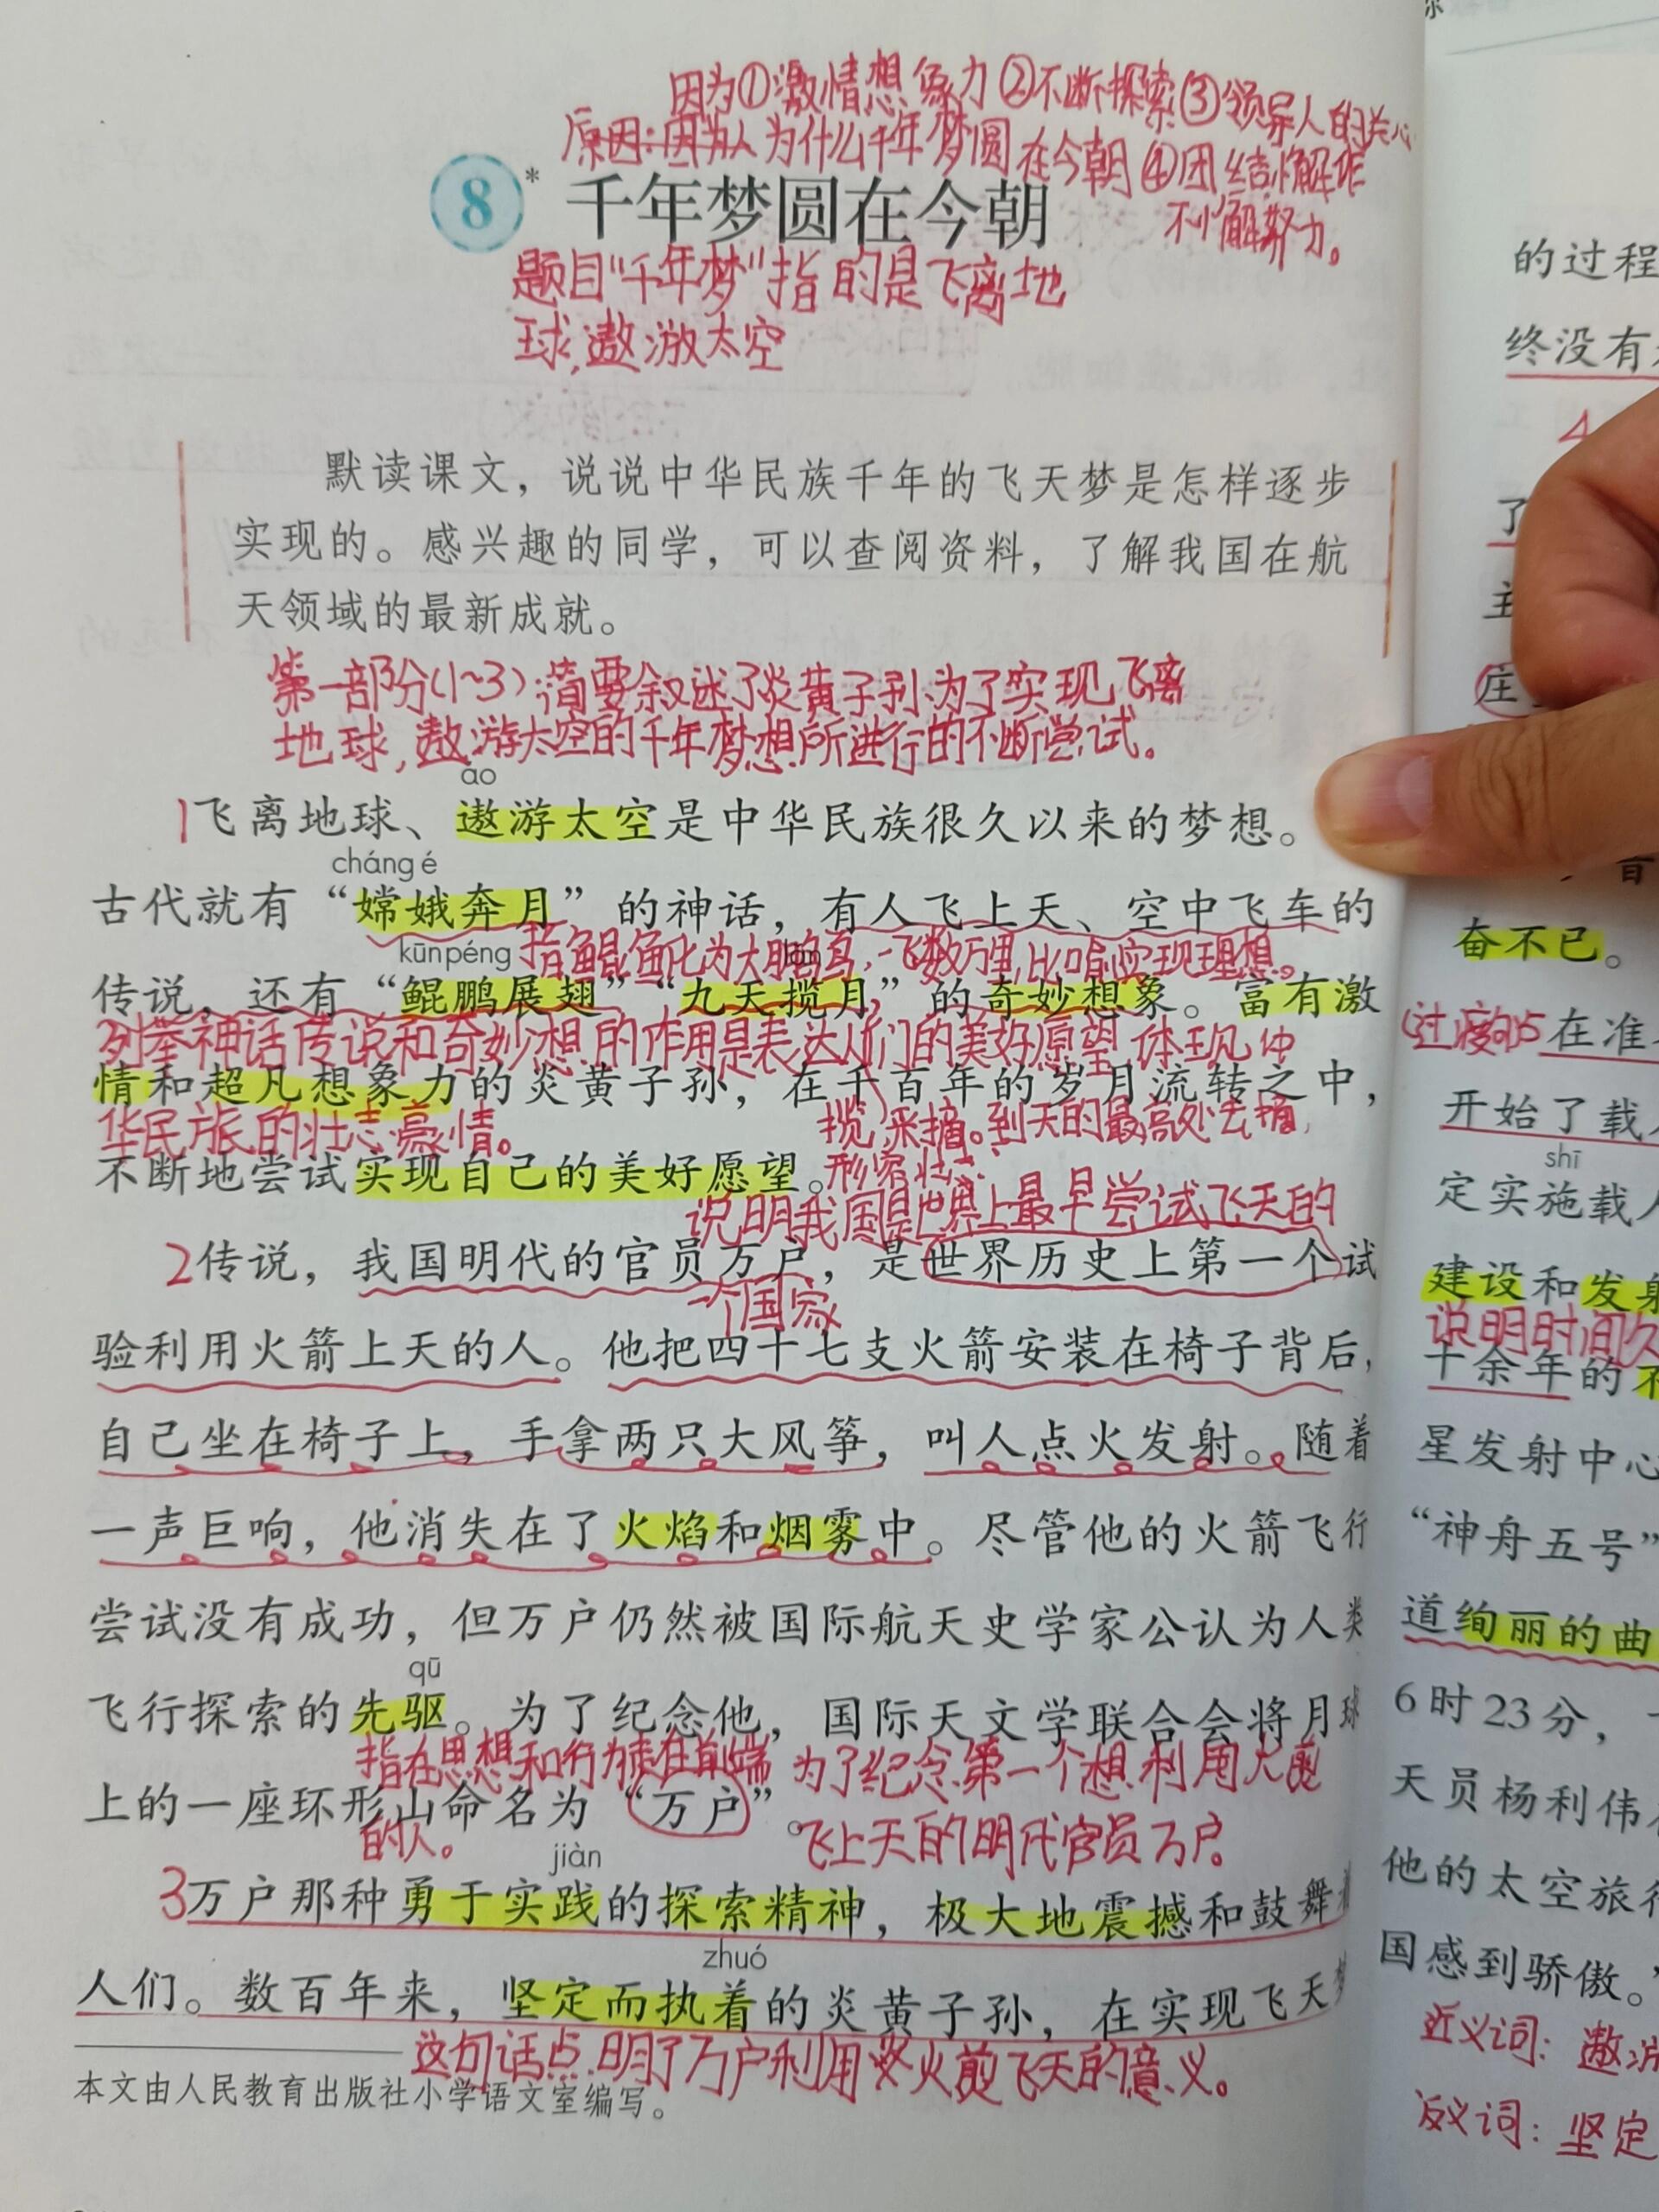 因为①激情想象力②不断探索③领导人的关心
原因:因为人为什么千年梦圆在今朝④团结懈作
不懈努力。
8*千年梦圆在今朝
题目“千年梦”指的是飞离地
球,遨游太空
默读课文，说说中华民族千年的飞天梦是怎样逐步
实现的。感兴趣的同学，可以查阅资料，了解我国在航
天领域的最新成就。
第一部分(1~3):简要叙述了炎黄子孙为了实现飞离
地球,遨游太空的千年梦想所进行的不断尝试。
áo
1飞离地球、遨游太空是中华民族很久以来的梦想。
cháng é
古代就有“嫦娥奔月”的神话，有人飞上天、空中飞车的
kūnpéng 指鲲鱼化为大鹏鸟,一飞数万里,比喻实现理想。
传说，还有“鲲鹏展翅”“九天揽月”的奇妙想象。富有激
列举神话传说和奇妙想的作用是表达人们的美好愿望,体现中
情和超凡想象力的炎黄子孙，在千百年的岁月流转之中，
华民族的壮志豪情。
揽)采摘。到天的最高处去摘,
不断地尝试实现自己的美好愿望。
形容壮志
说明我国是世界上最早尝试飞天的
2传说，我国明代的官员万户，是世界历史上第一个试
一个国家
验利用火箭上天的人。他把四十七支火箭安装在椅子背后，
自己坐在椅子上，手拿两只大风筝，叫人点火发射。随着
一声巨响，他消失在了火焰和烟雾中。尽管他的火箭飞行
尝试没有成功，但万户仍然被国际航天史学家公认为人类
qū
飞行探索的先驱。为了纪念他，国际天文学联合会将月球
指在思想和行为走在前端 为了纪念第一个想利用火箭
上的一座环形山命名为“万户”。
的人。
飞上天的明代官员万户。
jiàn
3万户那种勇于实践的探索精神，极大地震撼和鼓舞着
zhuó
人们。数百年来，坚定而执着的炎黄子孙，在实现飞天梦
这句话点明了万户利用火箭飞天的意义。
本文由人民教育出版社小学语文室编写。
的过程
终没有
4
了
主
庄
奋不已。
(过渡句)5在准
开始了载
shī
定实施载人
建设和发射
说明时间久
十余年的
星发射中心
“神舟五号”
道绚丽的曲
6时23分，
天员杨利伟
他的太空旅行
国感到骄傲。”
近义词:遨游
反义词:坚定